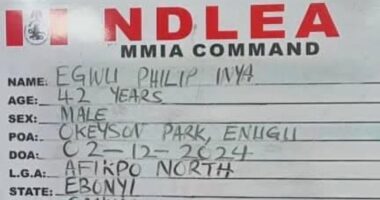 NDLEA
MMIA COMMAND
NAME: EGWU PHILIP INYA
AGE: 42 YEARS
SEX: MALE
POA: OKEYSON PARK, ENUGU
DOA: 02-12-2024
L.G.A: AFIKPO NORTH
STATE: EBONYI